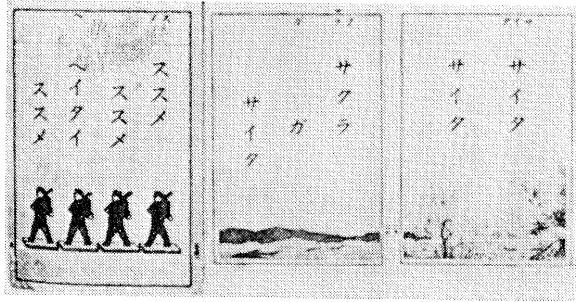 サイタ
サイタ
サクラ
ガ
サイタ
ススメ
ススメ
ヘイタイ
ススメ